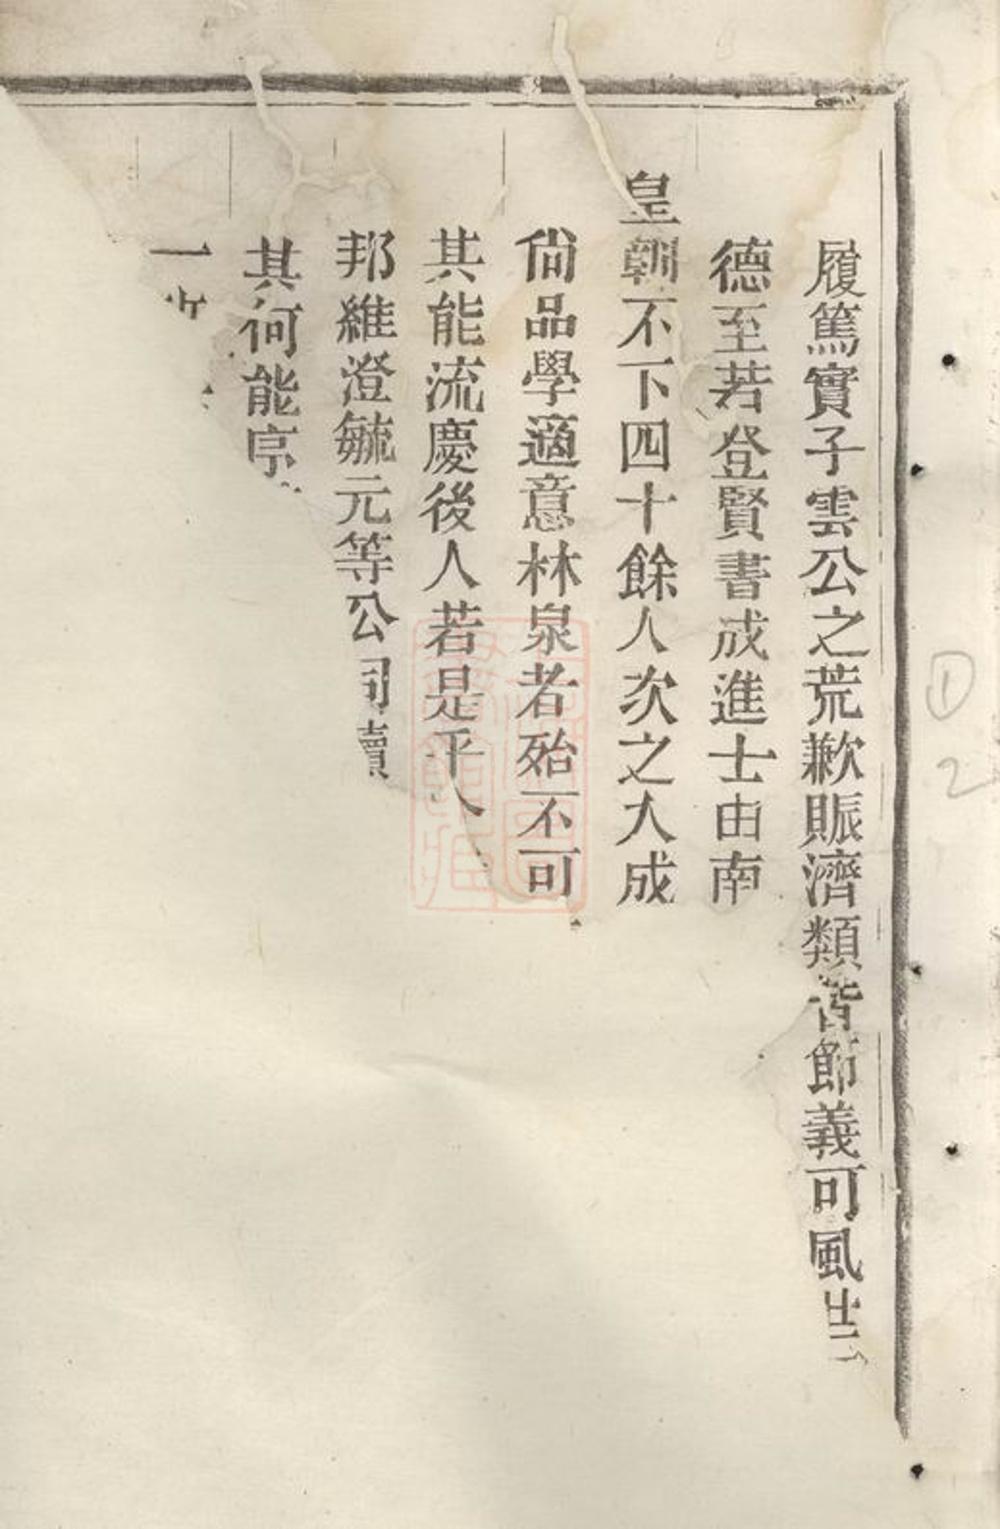 履篤實子雲公之荒歉賑濟類皆節義可風
德至若登賢書成進士由南
皇朝不下四十餘人次之大成
尙品學適意林泉者殆不可
其能流慶後人若是乎
邦維澄毓元等公同讀
其何能序
一
①
2